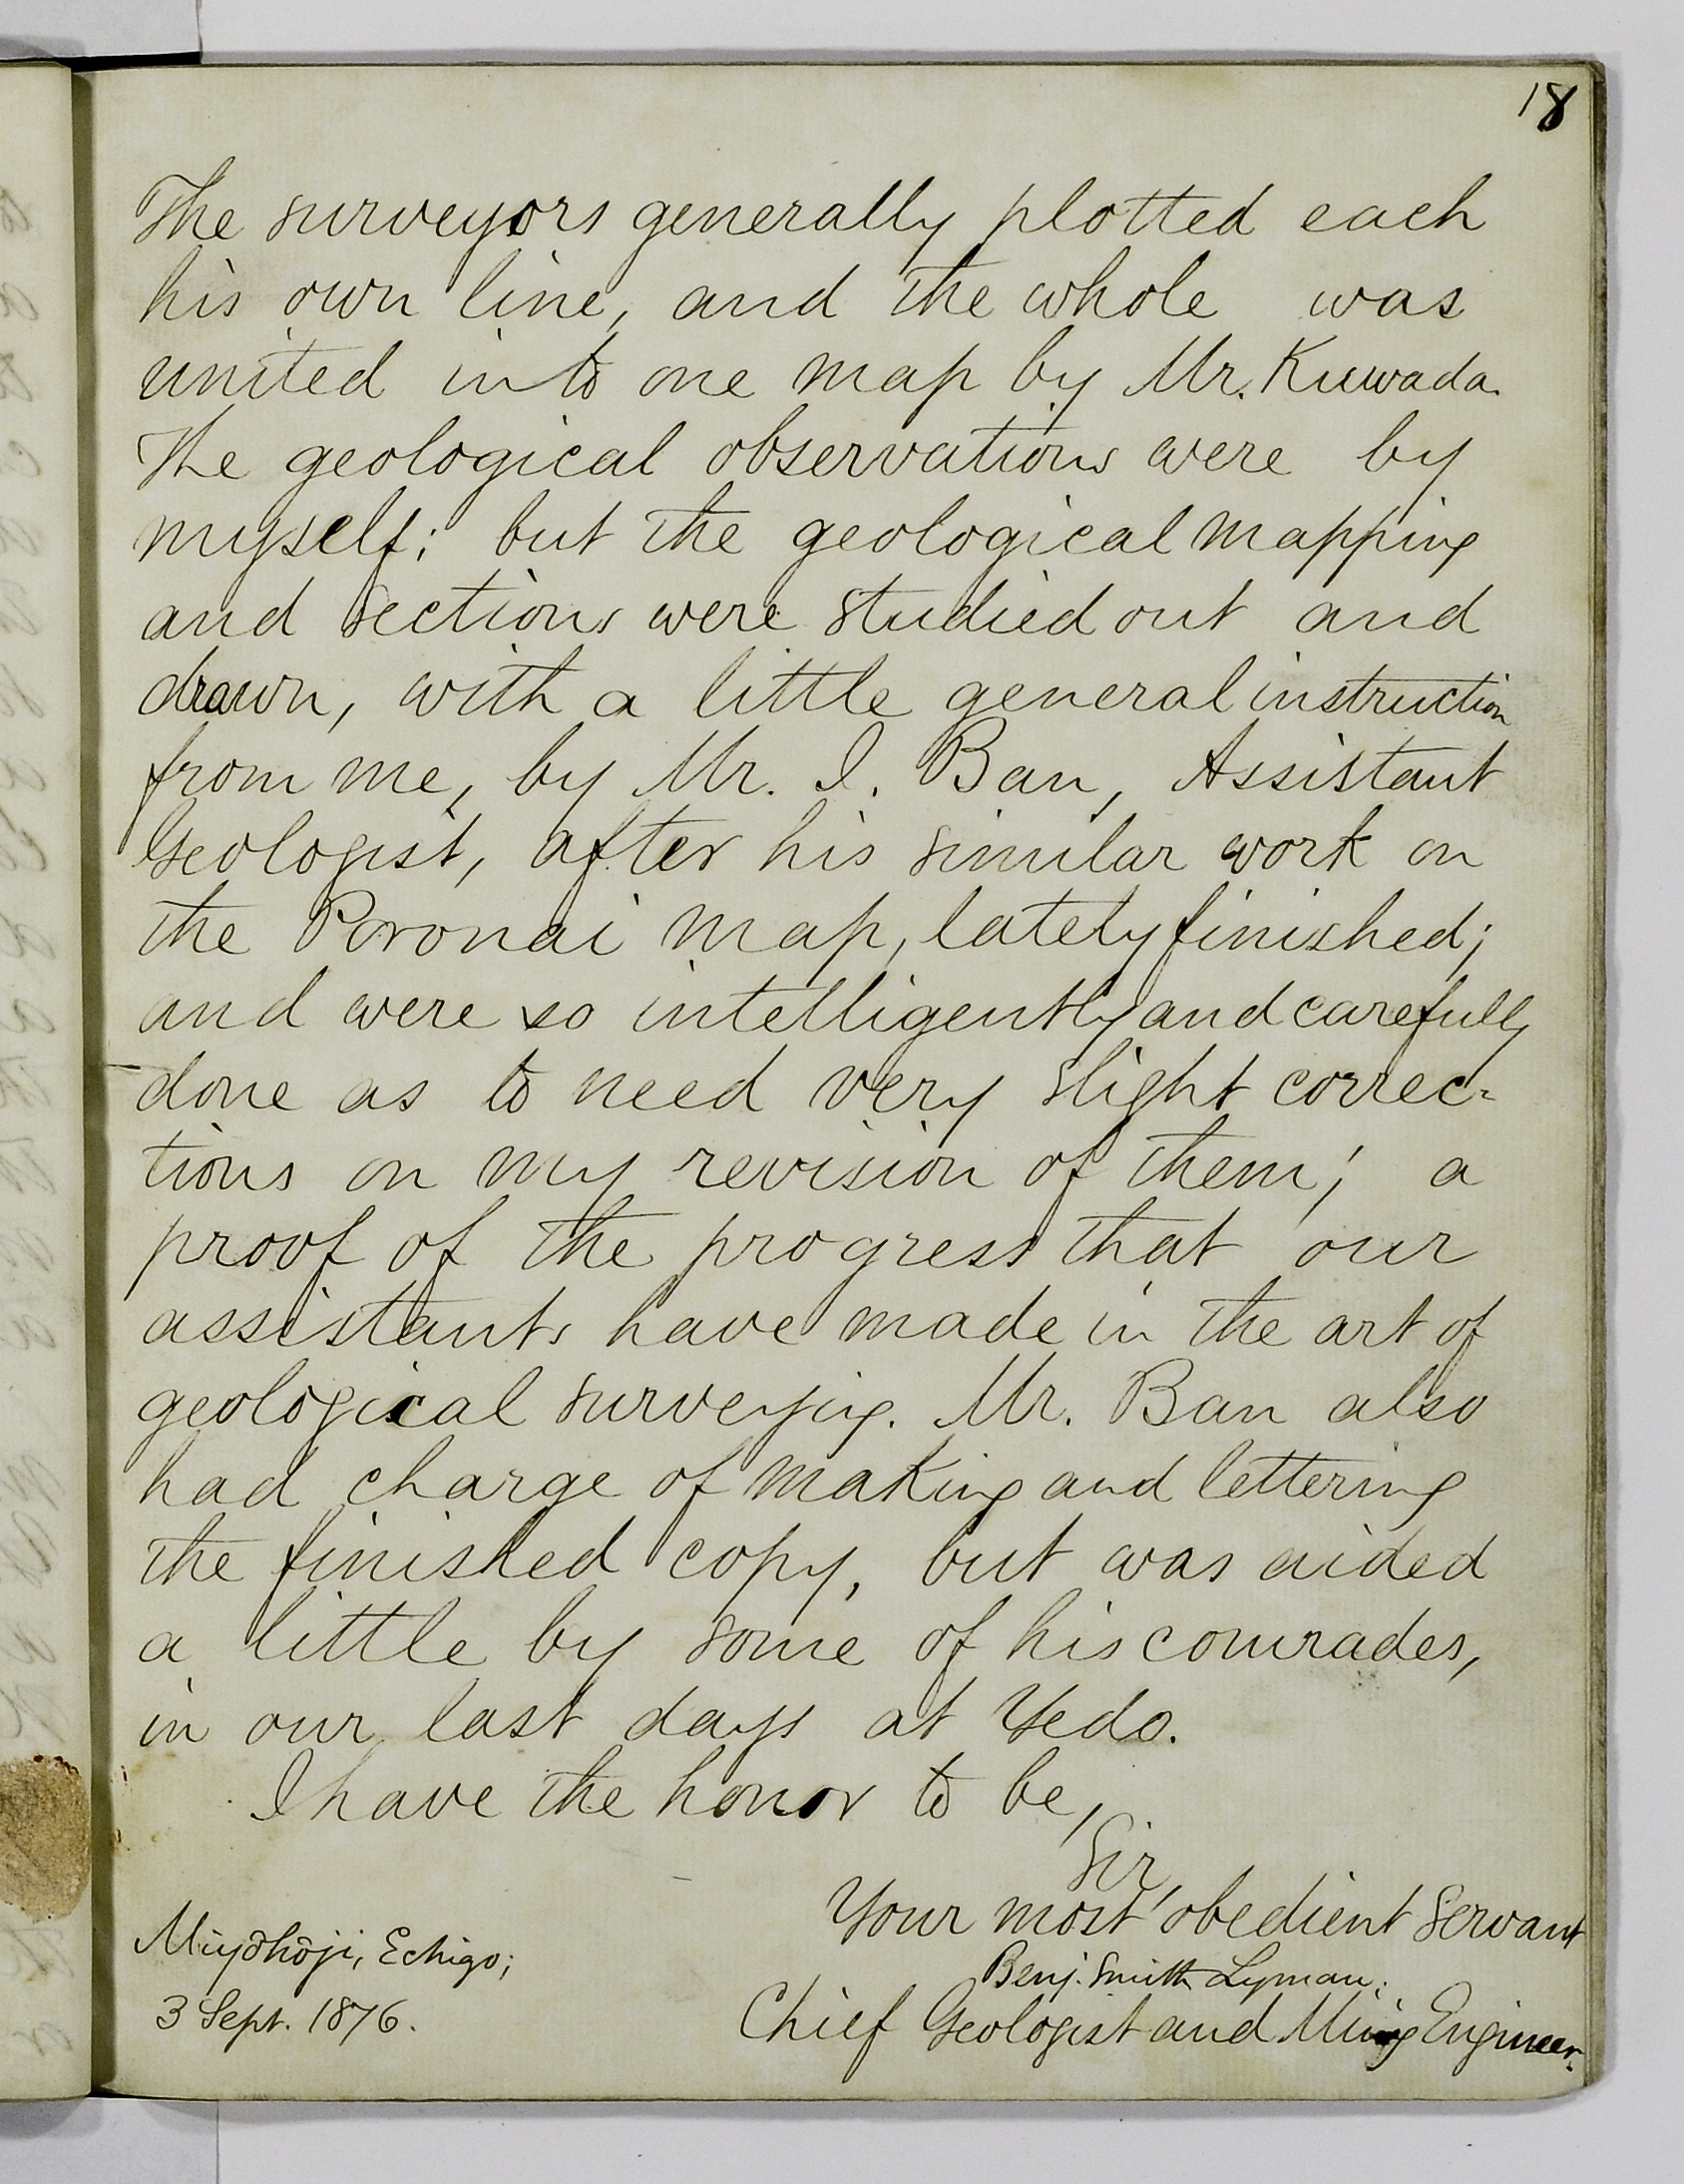 18
The surveyors generally plotted each
his own line, and the whole was
united into one map by Mr. Kuwada.
The geological observations were by
myself; but the geological mapping
and sections were studied out and
drawn, with a little general instruction
from me, by Mr. I. Ban, Assistant
Geologist, after his similar work on
the Poronai map, lately finished;
and were so intelligently and carefully
done as to need very slight correc-
tions on my revision of them; a
proof of the progress that our
assistants have made in the art of
geological surveying. Mr. Ban also
had charge of making and lettering
the finished copy, but was aided
a little by some of his comrades,
in our last days at Yedo.
I have the honor to be,
Sir,
Your most obedient servant
Benj. Smith Lyman.
Chief Geologist and Mining Engineer.
Miyōhōji, Echigo;
3 Sept. 1876.